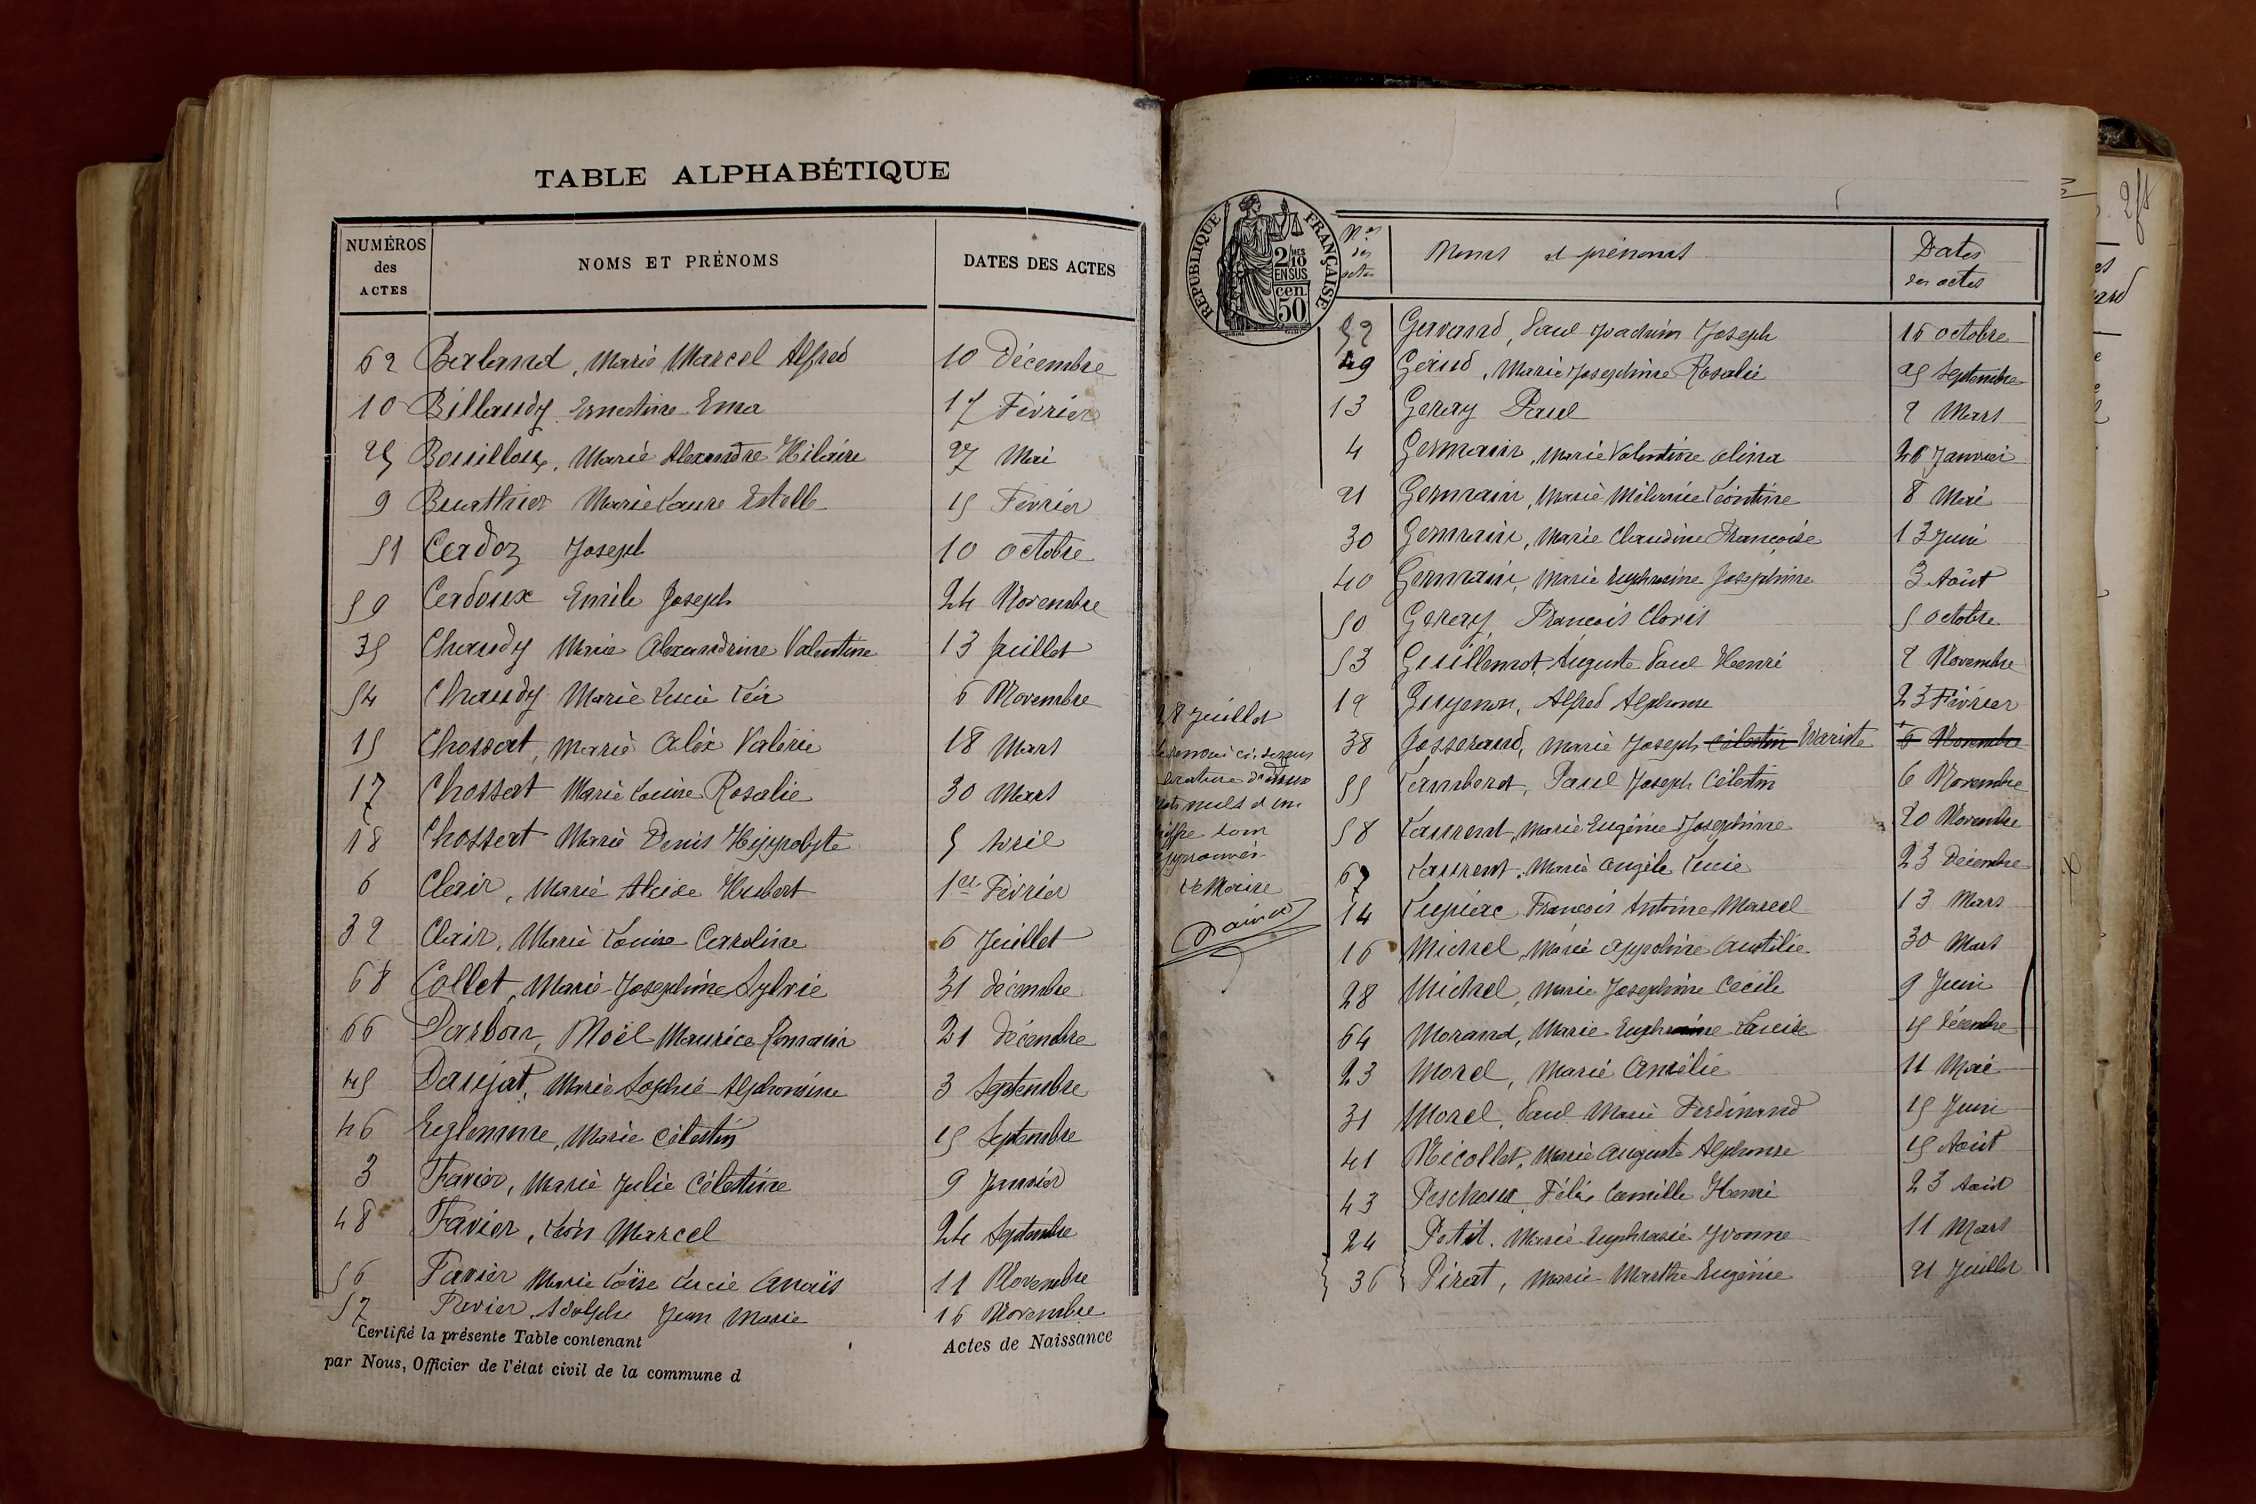 TABLE ALPHABÉTIQUE
NUMÉROS des ACTES NOMS ET PRÉNOMS DATES DES ACTES
62 Berland, Marie Marcel Alfred 10 Décembre
10 Billaudy Ernestine Ema 17 Février
25 Bouilloux, Marie Alexandre Hilaire 27 Mai
9 Buathier Marie Laure Estelle 15 Février
51 Cerdoz Joseph 10 octobre
59 Cerdoux Emile Joseph 24 Novembre
35 Chaudy Marie Alexandrine Valentine 13 Juillet
54 Chaudy Marie Lucie Léa 6 Novembre
15 Chossat, Marie Alix Valérie 18 Mars
17 Chossat Marie Louise Rosalie 30 Mars
18 Chossat Marie Denis Hyppolyte 5 Avril
6 Clair, Marie Alcide Hubert 1er Février
32 Clair, Marie Louise Caroline 6 Juillet
68 Collet, Marie Josephine Sylvie 31 décembre
66 Darbon, Noël Maurice Romain 21 décembre
45 Daujat, Marie Sophie Alphonsine 3 Septembre
46 Marie Célestin 15 Septembre
3 Favier, Marie Julie Célestine 9 Janvier
48 Favier, Léon Marcel 24 Septembre
56 Favier Marie Loïse Lucie Anaïs 11 Novembre
57 Favier Adolphe Jean Marie 16 Novembre
Certifié la présente Table contenant Actes de Naissance
par Nous, Officier de l'état civil de la commune d
RÉPUBLIQUE FRANÇAISE
2/10 EN SUS
50 cen
Nos des actes Noms et prénoms Dates des actes
52 Gavand, Paul Joachim Joseph 16 octobre
49 Géaud, Marie Josephine Rosalie 25 Septembre
13 Geray Paul 2 Mars
4 Germain, Marie Valentine Alina 26 Janvier
21 Germain, Marie Mélanie Léontine 8 Mai
30 Germain, Marie Claudine Françoise 13 Juin
40 Germain, Marie Euphrasine Josephine 3 Août
50 Geray, François Clovis 5 octobre
53 Guillemot, Auguste Paul Henri 2 Novembre
12 Guyenon, Alfred Alphonse 23 Février
38 Josserand, Marie Joseph Célestin Evariste 6 Novembre
55 Lambert, Paul Joseph Célestin 6 Novembre
58 Laurent, Marie Eugénie Josephine 20 Novembre
67 Laurent, Marie Angèle Lucie 23 Décembre
14 François Antoine Marcel 13 Mars
16 Michel, Marie Appoline 30 Mars
28 Michel, Marie Josephine Cécile 9 Juin
64 Morand, Marie Louise 15 Décembre
23 Morel, Marie Amélie 11 Mai
31 Morel, Paul Marie Ferdinand 15 Juin
41 Nicollet, Marie Auguste Alphonse 15 Août
43 Peschoux, Félix Camille Henri 23 Août
24 Petit, Marie Euphrasie Yvonne 11 Mars
36 Pirat, Marie Marthe Eugénie 21 Juillet
28 Juillet
ci-dessus
rature
nuls et un
chiffre sont
approuvés
Le Maire